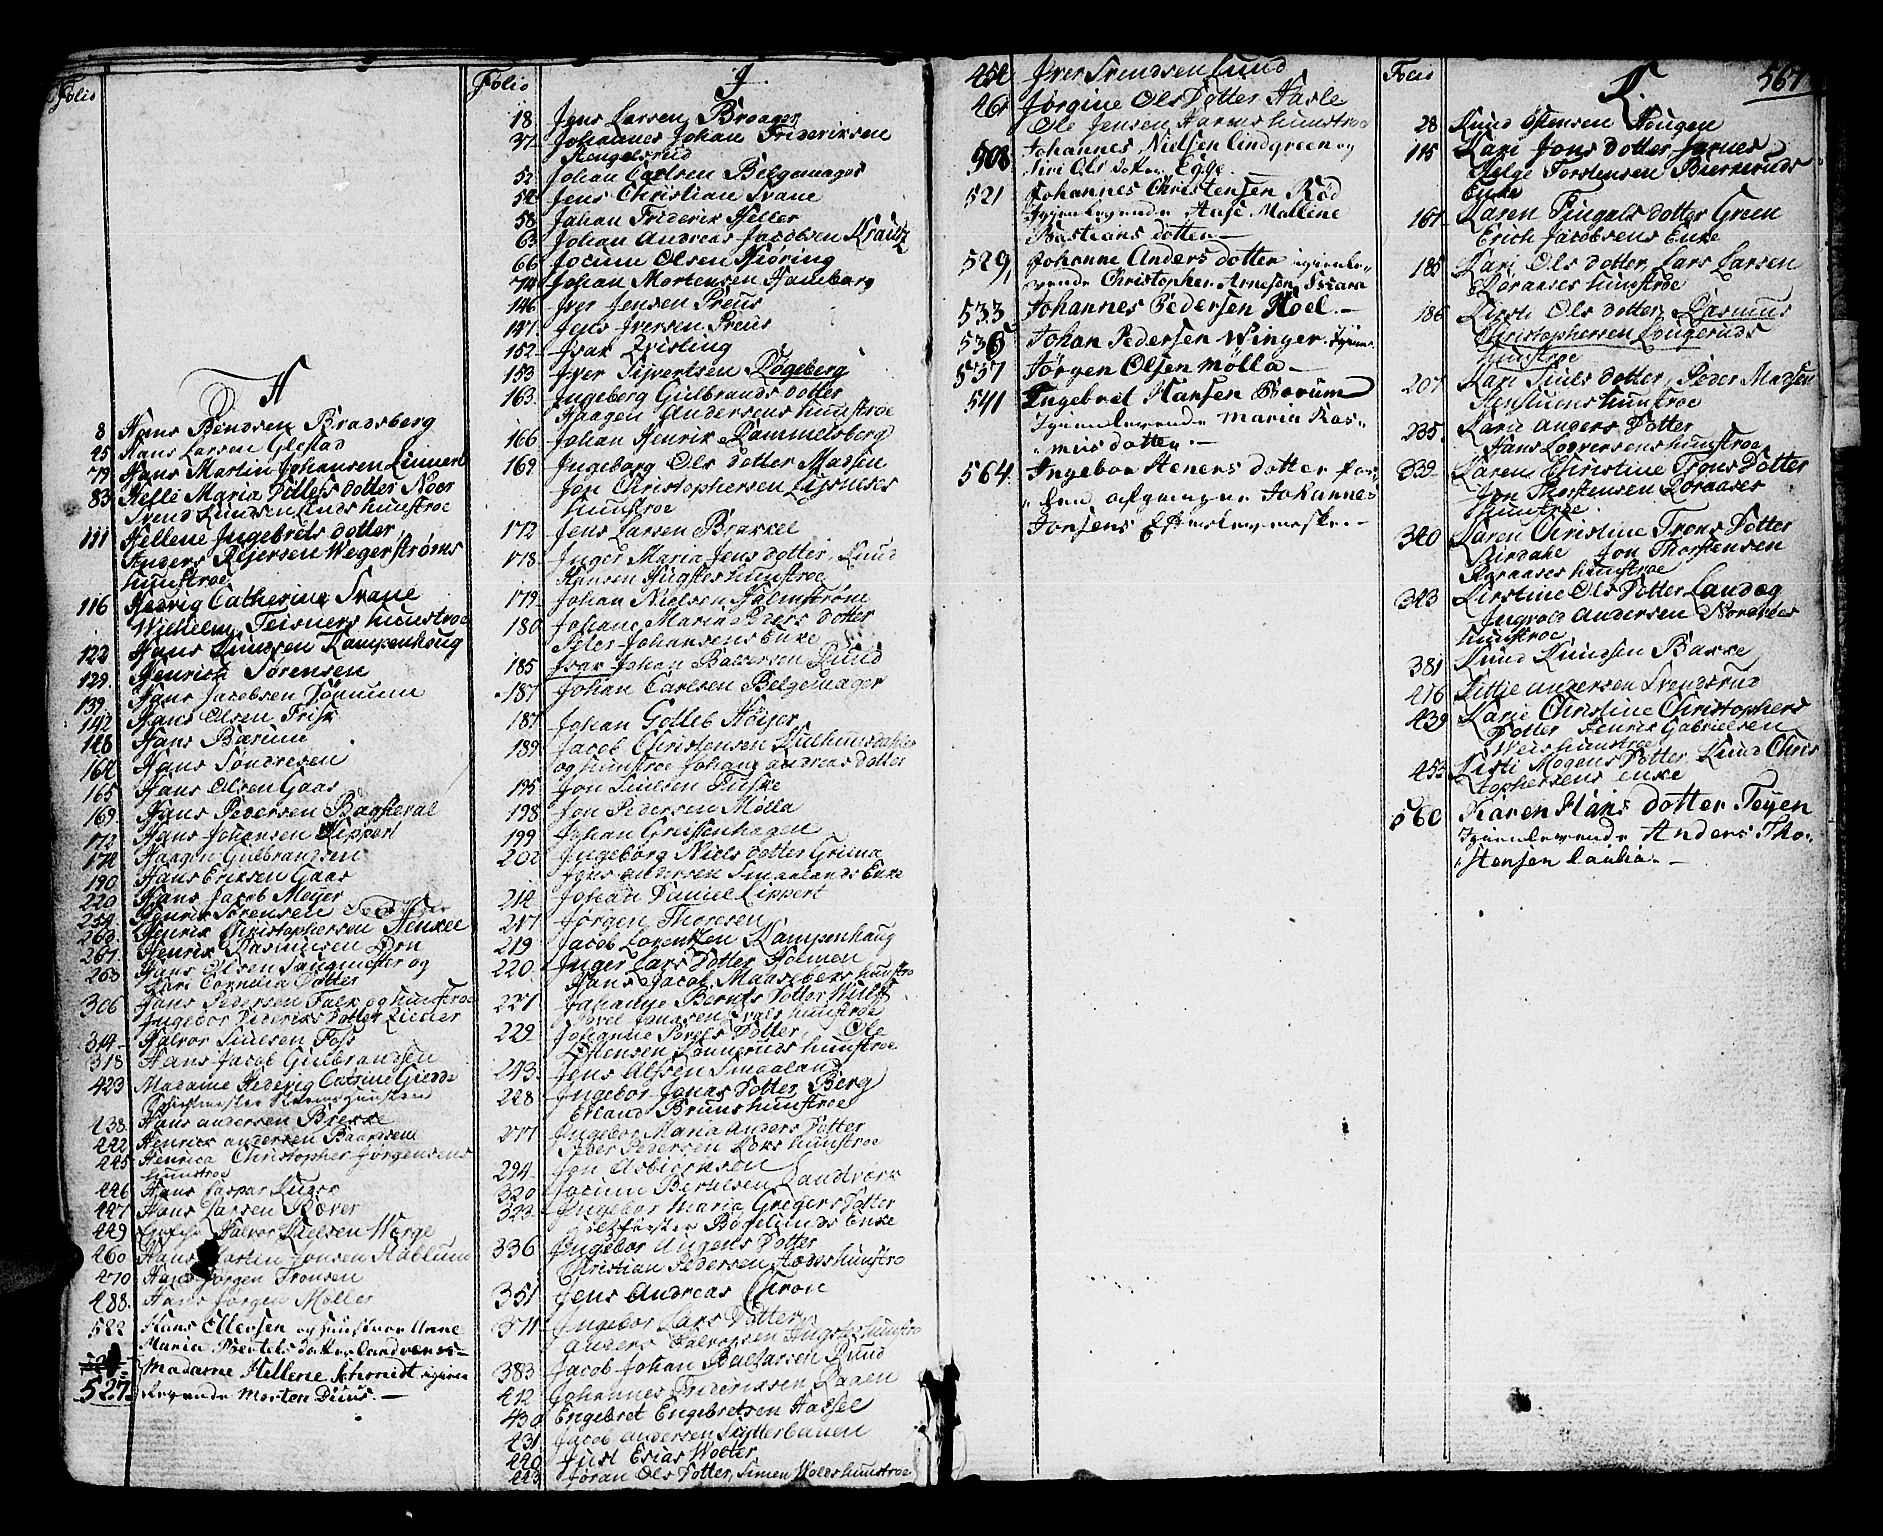 Folio
H
8 Hans Bendsen Bradsberg
25 Hans Larsen Glestad
79 Hans Martin Johansen Linnert
83 Helle Maria Ditlefs dotter Noor
Svend Knudsen Lunds hunstroe
111 Hellene Ingebrets dotter
Anders Rejersen Wegerstrøms
hunstroe
116 Hedvig Catherine Svane
Wilhelm Teisners hunstroe
122 Hans Knudsen Kampenhoug
129 Henrich Sørensen
139 Hans Jacobsen Dønnum
142 Hans Olsen Frisk
148 Hans Bærum
164 Hans Søndresen
165 Hans Olsen Gaas
169 Hans Pedersen Bagsteval
172 Hans Johansen Lippert
174 Haagen Gulbrandsen
190 Hans Eriksen Gaas
220 Hans Jacob Meyer
254 Henrik Sørensen
260 Henrik Christophersen Henkel
267 Henrik Rasmussen Løn
263 Hans Olsen Saugmester og
Kari Cornelia Dotter
306 Hans Pedersen Falk og hunstroe
Ingebor Didriks Dotter Linner
314 Halvor Siulsen Foss
318 Hans Jacob Gulbrandsen
423 Madame Hedevig Catrine Gierdr
hunstroe
438 Hans andersen Brekke
442 Henrick andersen Baardsen
445 Henrica Christopher Jørgensens
hunstroe
446 Hans Caspar Kuger
447 Hans Larsen Bæver
449 Halvor Nielsen Werge
460 Hans Morten Jonsen Hablum
470 Hans Jørgen Tronsen
488 Hans Jørgen Møller
522 Hans Ellersen og hunstroe Anne
Maria Bertels dotter Landvens
527 Madame Hellene Schmidt igien
levende Morten Duus.
Folio
J
18 Jens Larsen Braager
37 Johannes Johan Frideriksen
Rongelsrud
52 Johan Carlsen Belgemager
54 Jens Christian Svane
58 Johan Friderik Heller
63 Johan Andreas Jacobsen Krautz
66 Jocum Olsen Kiøring
74 Johan Mortensen Hamborg
146 Iver Jensen Preus
147 Jens Iversen Preus
152 Isak Qvisling
153 Iver Sivertsen Røgeberg
163 Ingeberg Gulbrands dotter
Haagen Andersens hunstroe
166 Johan Henrik Rammelsberg
169 Ingeborg Ols dotter Madsen
Jon Christophersen
hunstroe
172 Jens Larsen Brakkel
178 Inger Maria Jens dotter, Knud
Hansen Hugsters hunstroe
179 Johan Nielsen Palmstrøm
180 Johane Maria Peders dotter
Peter Johansens Enke
185 Isak Johan Baltersen Rund
187 Johan Carlsen Belgemager
187 Johan Gotleb Høyer
189 Jacob Christensen
og hunstroe Johane andreas dotter
195 Jon Siulsen Fuske
198 Jon Pedersen Mølla
199 Johan Grussenhagen
202 Ingeborg Niels dotter Gruna
Jens andersen Smaalands Enke
214 Johan Daniel Lippert
217 Jørgen Thoresen
219 Jacob Lorentzen Kampenhaug
220 Inger Lars dotter Holmen
Hans Jacob Maasebers hunstro
221 Johanne Bernts dotter Wulff
Poul Jonassen Krals hunstroe
229 Johanne Povels dotter, Ole
Østensen Lønneruds hunstroe
243 Jens Alfsen Smaaland
248 Ingebor Jonas dotter Berg
Erland Bruns hunstroe
277 Ingebor Maria Anders dotter
Peder Pedersen Loks hunstroe
294 Jon Asbiørnsen
320 Jocum Bertelsen Landværk
323 Ingebor Maria Gregers dotter
Bøgelunds Enke
336 Ingebor Augens dotter
Christian Pedersen hunstro
351 Jens Andreas Throne
371 Ingebor Lars dotter
anders Halvorsen Hugsters hunstro
383 Jacob Johan Baltassen Rund
412 Johannes Frideriksen Raaen
430 Engebret Engebretsen Hassel
431 Jacob andersen Skytterbauen
440 Just Esias Wolter
443 Jøran Ols dotter, Simen Wolds hunstroe
454 Iver Svendsen Lund
461 Jørgine Ols Dotter Hasle
Ole Jensen hunstroe
508 Johannes Nielsen Lindgreen og
Siri Ols dotter Egge.
521 Johannes Christensen Rød
Igienlevende Aase Mallene
Bastians dotter
529 Johanne Anders dotter igienle-
vende Christopher Arnesen Skiara
533 Johannes Pedersen Hoel.
536 Johan Pedersen Winger.
537 Jørgen Olsen Mølla
541 Ingebret Hansen Bærum
Igienlevende Maria Ras-
mus dotter.
564 Ingebor Steners dotter for-
hen afgangne Johannes
Jonsens Efterleverske.
Folio
K.
567
28 Knud Østensen Hougen
115 Kari Jons dotter Jarnes
Helge Torstensen Biernruds
Enke
167 Karen Fingals dotter Green
Erich Jacobsens Enke
185 Kari Ols dotter, Lars Larsen
Roraases hunstroe
186 Kirsti Ols dotter Rasmus
Christophersen Lougeruds
hunstroe
207 Kari Siuls dotter, Peder Madsen
Stenstuens hunstroe
235 Karie anders dotter
Hans Loversens hunstroe
339 Karen Christine Trons dotter
Jon Thorstensen Roraases
hunstroe.
340 Karen Christine Trons dotter
Jon Thorstensen
Roraases hunstroe
343 Kirstine Ols dotter Landøg
Ingvold Andersen
hunstroe
381 Knud Knudsen Bakke
416 Kittje andersen Svendsrud
439 Karie Christine Christophers
dotter Henrik Gabrielsen
Weis hunstroe
453 Kisti Mogens Dotter Knud Chris
tophersens enke
560 Karen Hans dotter Teyen
Igienlevende Anders Tho-
stensen Lauka.